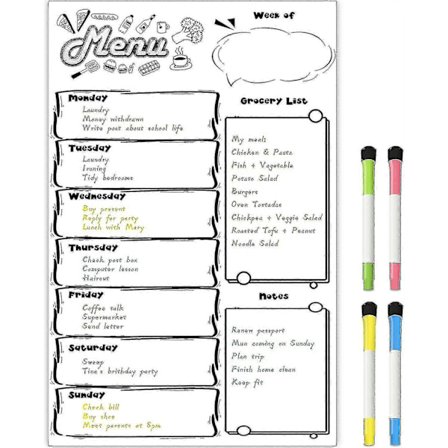 Menu
Week of
Monday
Laundry
Money withdrawn
Write post about school life
Tuesday
Laundry
Ironing
Tidy bedrooms
Wednesday
Buy present
Reply for party
Lunch with Mary
Thursday
Check post box
Computer lesson
Haircut
Friday
Coffee talk
Supermarket
Send letter
Saturday
Sweep
Tina's birthday party
Sunday
Check bill
Buy shoe
Meet parents at 5pm
Grocery List
My meals
Chicken & Pasta
Fish + Vegetable
Potato Salad
Burgers
Oven Tostadas
Chickpea + Veggie Salad
Roasted Tofu + Peanut
Noodle Salad
Notes
Renew passport
Mum coming on Sunday
Plan trip
Finish home clean
Keep fit